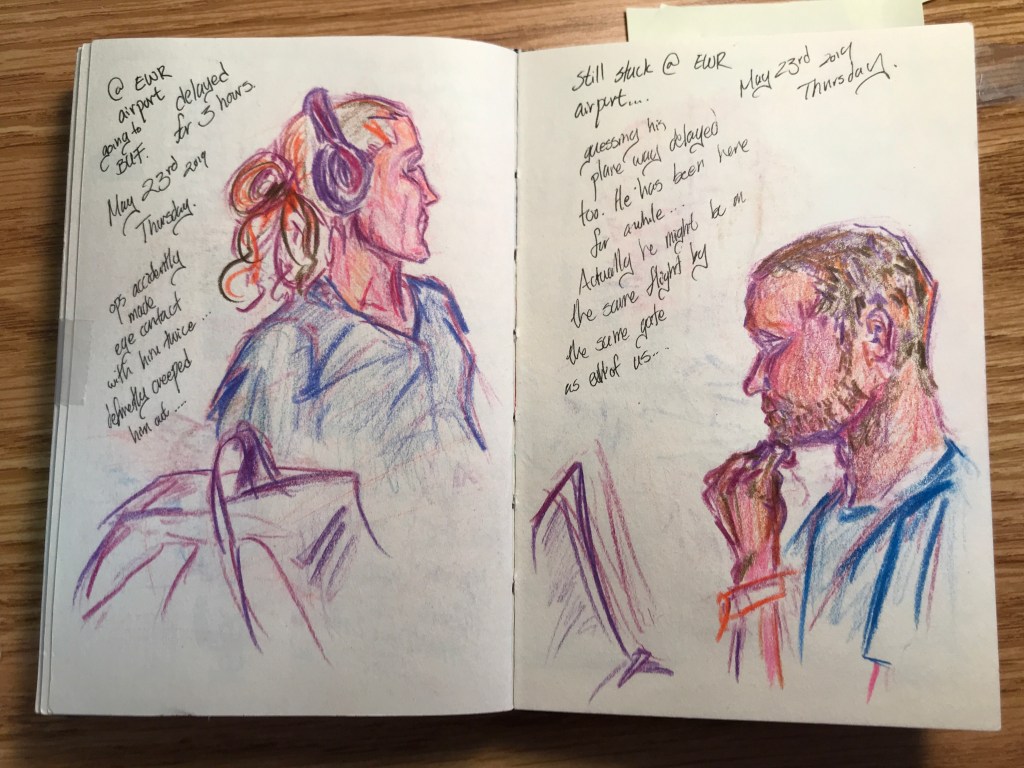 @ EWR
airport
going to
BUF.
delayed
for 3 hours.
May 23rd 2019
Thursday.
ops accidently
made
eye contact
with him twice ...
definetly creeped
him out .....
Still stuck @ EWR
airport....
May 23rd 2019
Thursday.
guessing his
plane was delayed
too. He has been here
for awhile ...
Actually he might be on
the same flight by
the same gate
as of us...